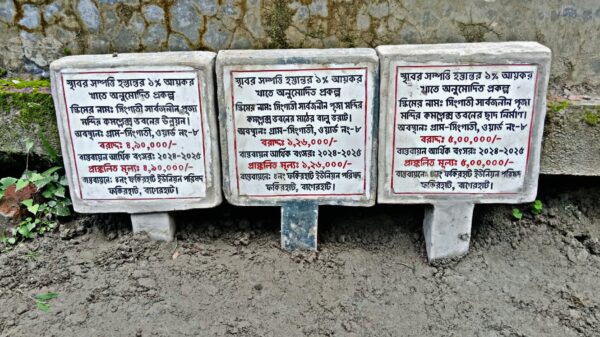 স্থাবর সম্পত্তি হস্তান্তর ১% আয়কর
খাতে অনুমোদিত প্রকল্প
স্কিমের নামঃ সিংগাতী সার্বজনীন পূজা
মন্দির কমপ্লেক্স ভবনের উন্নয়ন।
অবস্থানঃ গ্রাম-সিংগাতী, ওয়ার্ড নং-৮
বরাদ্দঃ ৪,৯০,০০০/-
বাস্তবায়ন আর্থিক বৎসরঃ ২০২৪-২০২৫
প্রাক্কলিত মূল্যঃ ৪,৯০,০০০/-
বাস্তবায়নেঃ ৪নং ফকিরহাট ইউনিয়ন পরিষদ
ফকিরহাট, বাগেরহাট।
স্থাবর সম্পত্তি হস্তান্তর ১% আয়কর
খাতে অনুমোদিত প্রকল্প
স্কিমের নামঃ সিংগাতী সার্বজনীন পূজা মন্দির
কমপ্লেক্স ভবনের মাঠের বালু ভরাট।
অবস্থানঃ গ্রাম-সিংগাতী, ওয়ার্ড নং-৮
বরাদ্দঃ ১,২৬,০০০/-
বাস্তবায়ন আর্থিক বৎসরঃ ২০২৪-২০২৫
প্রাক্কলিত মূল্যঃ ১,২৬,০০০/-
বাস্তবায়নেঃ ৪নং ফকিরহাট ইউনিয়ন পরিষদ
ফকিরহাট, বাগেরহাট।
স্থাবর সম্পত্তি হস্তান্তর ১% আয়কর
খাতে অনুমোদিত প্রকল্প
স্কিমের নামঃ সিংগাতী সার্বজনীন পূজা
মন্দির কমপ্লেক্স ভবনের ছাদ নির্মাণ।
অবস্থানঃ গ্রাম-সিংগাতী, ওয়ার্ড নং-৮
বরাদ্দঃ ৫,০০,০০০/-
বাস্তবায়ন আর্থিক বৎসরঃ ২০২৪-২০২৫
প্রাক্কলিত মূল্যঃ ৫,০০,০০০/-
বাস্তবায়নেঃ ৪নং ফকিরহাট ইউনিয়ন পরিষদ
ফকিরহাট, বাগেরহাট।